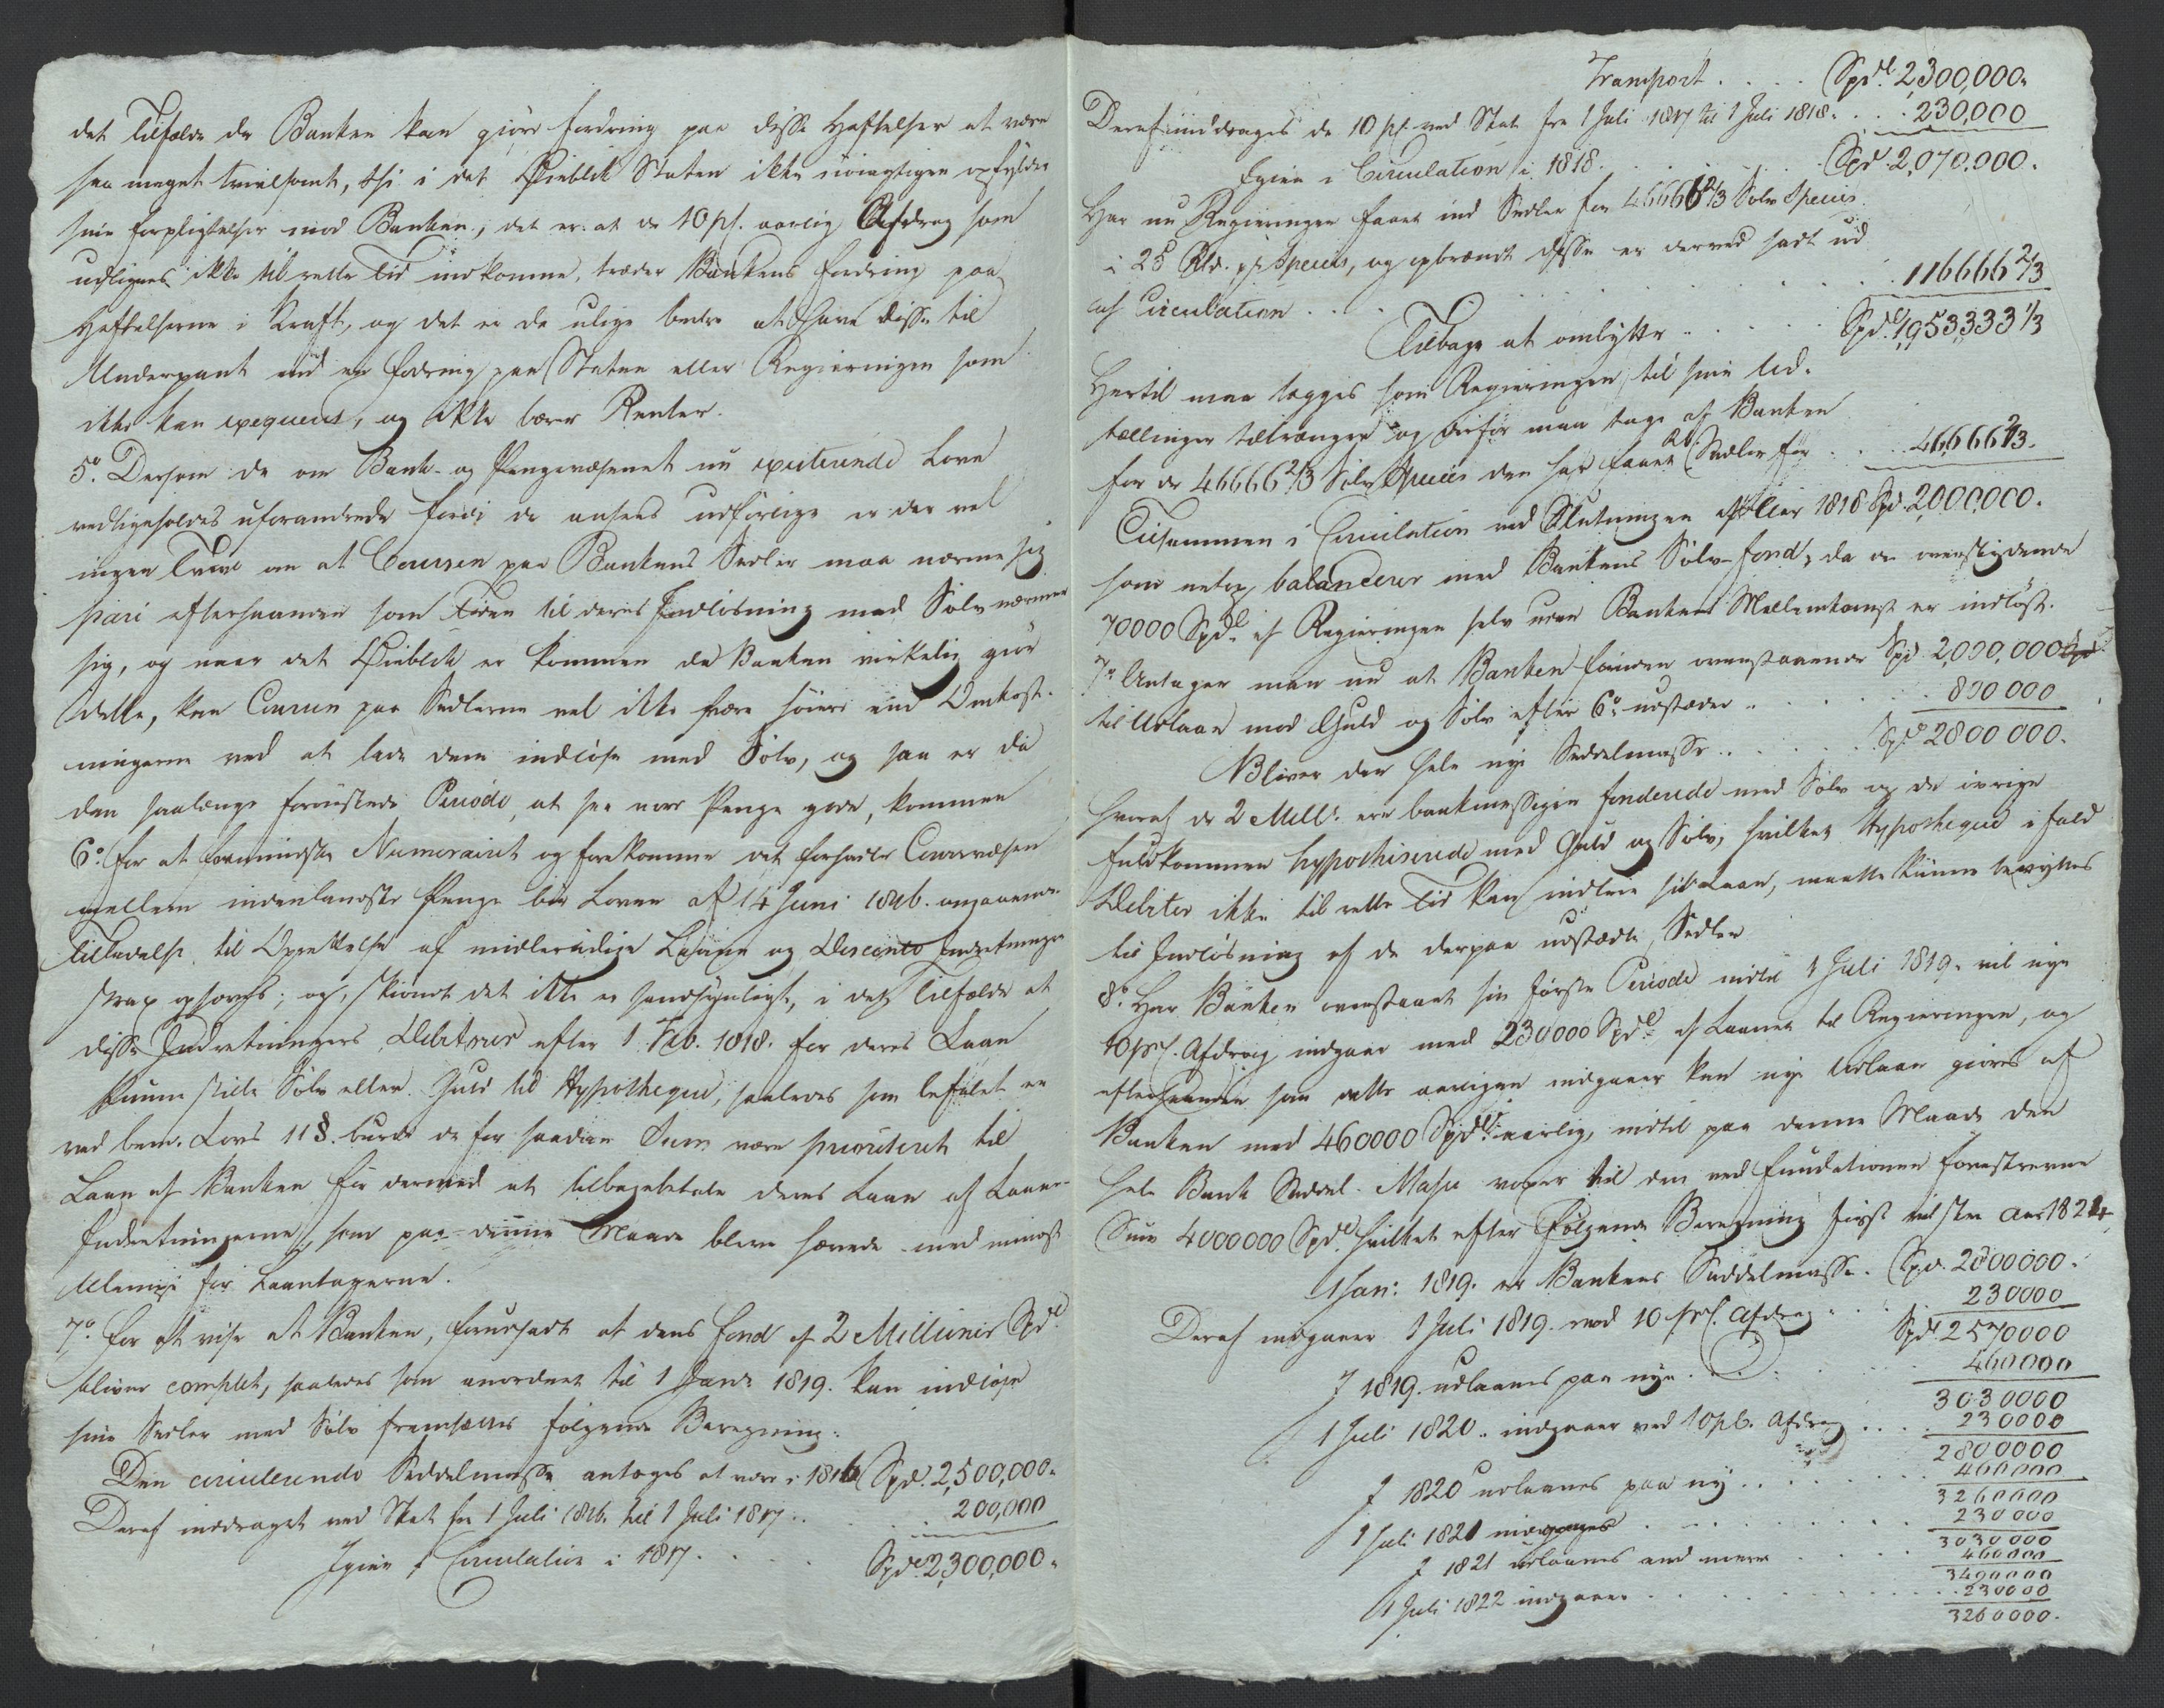 det Tilfælde da Banken kan giøre fordring paa disse Hæftelser at være
saa meget tvivlsomt, thi i det Øieblik Staten ikke nöiagtigen opfylder
sine forpligtelser mod Banken, det er: at de 10 pC. aarlig Afdrag som
udlignes ikke til rette Tid indkomme, træder Bankens fordring paa
Hæftelserne i Kraft, og det er da ulige bedre at have disse til
Underpant end en fodring paa Staten eller Regieringen som
ikke kan exeqveres, og ikke bærer Renter.
5o. Dersom de om Bank- og Pengevæsenet nu existerende Love
vedligeholdes uforandrede fordi de ansees udførlige er der vel
ingen Tvivl om at Coursen paa Bankens Sedler maa nærme sig
pari efterhaanden som Tiden til deres Indlösning med Sölv nærmer
sig, og naar det Øieblik er kommen da Banken virkelig giör
dette, kan Coursen paa Sedlerne vel ikke være höiere end Omkost-
ningerne ved at lade dem indlöse med Sölv, og saa er da
den saalænge forönskede Periode, at see vore Penge gode, kommen
6o. For at formindske Numerairet og forekomme det forhadte Coursvæsen
mellem indenlandske Penge bör Loven af 14 Juni 1816. angaaende
Tilladelse til Oprettelse af midlertidige Laane og Disconto Indretninger
strax ophæves; og, skiöndt det ikke er sandsynligt, i det Tilfælde at
disse Indretningers Debitorer efter 1 Feb. 1818. for deres Laan
kunne stille Sölv eller Guld til Hypotheque, saaledes som befalet er
ved bem. Lovs 11 §. burde de for saadan Sum være prioriteret til
Laan af Banken for dermed at tilbagebetale deres Laan af Laane-
Indretningerne, som paa denne Maade bleve hævede med mindst
Ulempe for Laantagerne.
7o. For at vise at Banken, forudsadt at dens Fond af 2 Millioner Spd.
bliver complet, saaledes som anordnet til 1 Janr. 1819. kan indlöse
sine Sedler med Sölv fremsættes fölgende Beregning:
Den circulerende Seddelmasse antages at være i 1816 Spd. 2,500,000.
Deraf inddraget ved Skat fra 1 Juli 1816. til 1 Juli 1817 . . 200,000
Igien i Circulation i 1817 . . . Spd. 2,300,000.
Transport . . . . Spd. 2,300,000.
Deraf inddrages de 10 pC. ved Skat fra 1 Juli 1817 til 1 Juli 1818. . . . 230,000
Igien i Circulation i 1818. . . . Spd. 2,070,000.
Har nu Regieringen faaet ind Sedler for 46666 2/3 Sölv Species
i 25 Rd. pr Species, og opbrændt disse er derved sadt ud
af Circulation . . . 116666 2/3
Tilbage at ombytte . . . Spd. 1,953,333 1/3
Hertil maa lægges som Regieringen til sine Ud-
tællinger tiltrænger og derfor maa tage af Banken
for de 46666 2/3 Sölv Species den har faaet Sedler for . . . 46,666 2/3.
Tilsammen i Circulation ved Slutningen af Aar 1818 Spd. 2,000,000.
som netop balancerer med Bankens Sölv-fond, da de overskydende
70000 Spd. af Regieringen selv uden Bankens Mellemkomst er indlöst.
7o. Antager man nu at Banken foruden ovenstaaende Spd. 2,000,000
til Udlaan mod Guld og Sölv efter 6o. udstæder . . . 800000
Bliver den hele nye Seddelmasse . . . Spd. 2800 000.
hvoraf de 2 Mill. ere bankmessigen funderede med Sölv og de övrige
fuldkommen hypothiserede med Guld og Sölv, hvilken Hypotheque i fald
Debitor ikke til rette Tid kan indfrie sit Laan, maatte kunne benyttes
til Indlösning af de derpaa udstædte Sedler
8o. Har Banken overstaaet sin förste Periode indtil 1 Juli 1819. vil nye
10 pC. Afdrag indgaae med 230000 Spd. af Laanet til Regieringen, og
efterhaanden som dette aarligen indgaaer kan nye Udlaan giöres af
Banken med 460000 Spd. aarlig, indtil paa denne Maade den
hele Bank Seddel-Masse voxer til den ved Fundationen foreskrevne
Sum 4000000 Spd. hvilket efter fölgende Beregning först vil skee Aar 1824
1 Jan: 1819. er Bankens Seddelmasse. Spd. 2800000.
Deraf indgaaer 1 Juli 1819. med 10 pC. Afdrag . . . 230000
Spd. 2570000
I 1819. udlaanes paa nye . . . 460000
3030000
1 Juli 1820. indgaaer ved 10 pC. Afdrag . . . . 230000
2800000
I 1820 udlaanes paa ny . . . 460000
3260000
1 Juli 1821 indgaaer . . . 230000
3030000
I 1821 udlaanes end mere . . . 460000
3490000
1 Juli 1822 indgaaer . . . 230000
3260000.